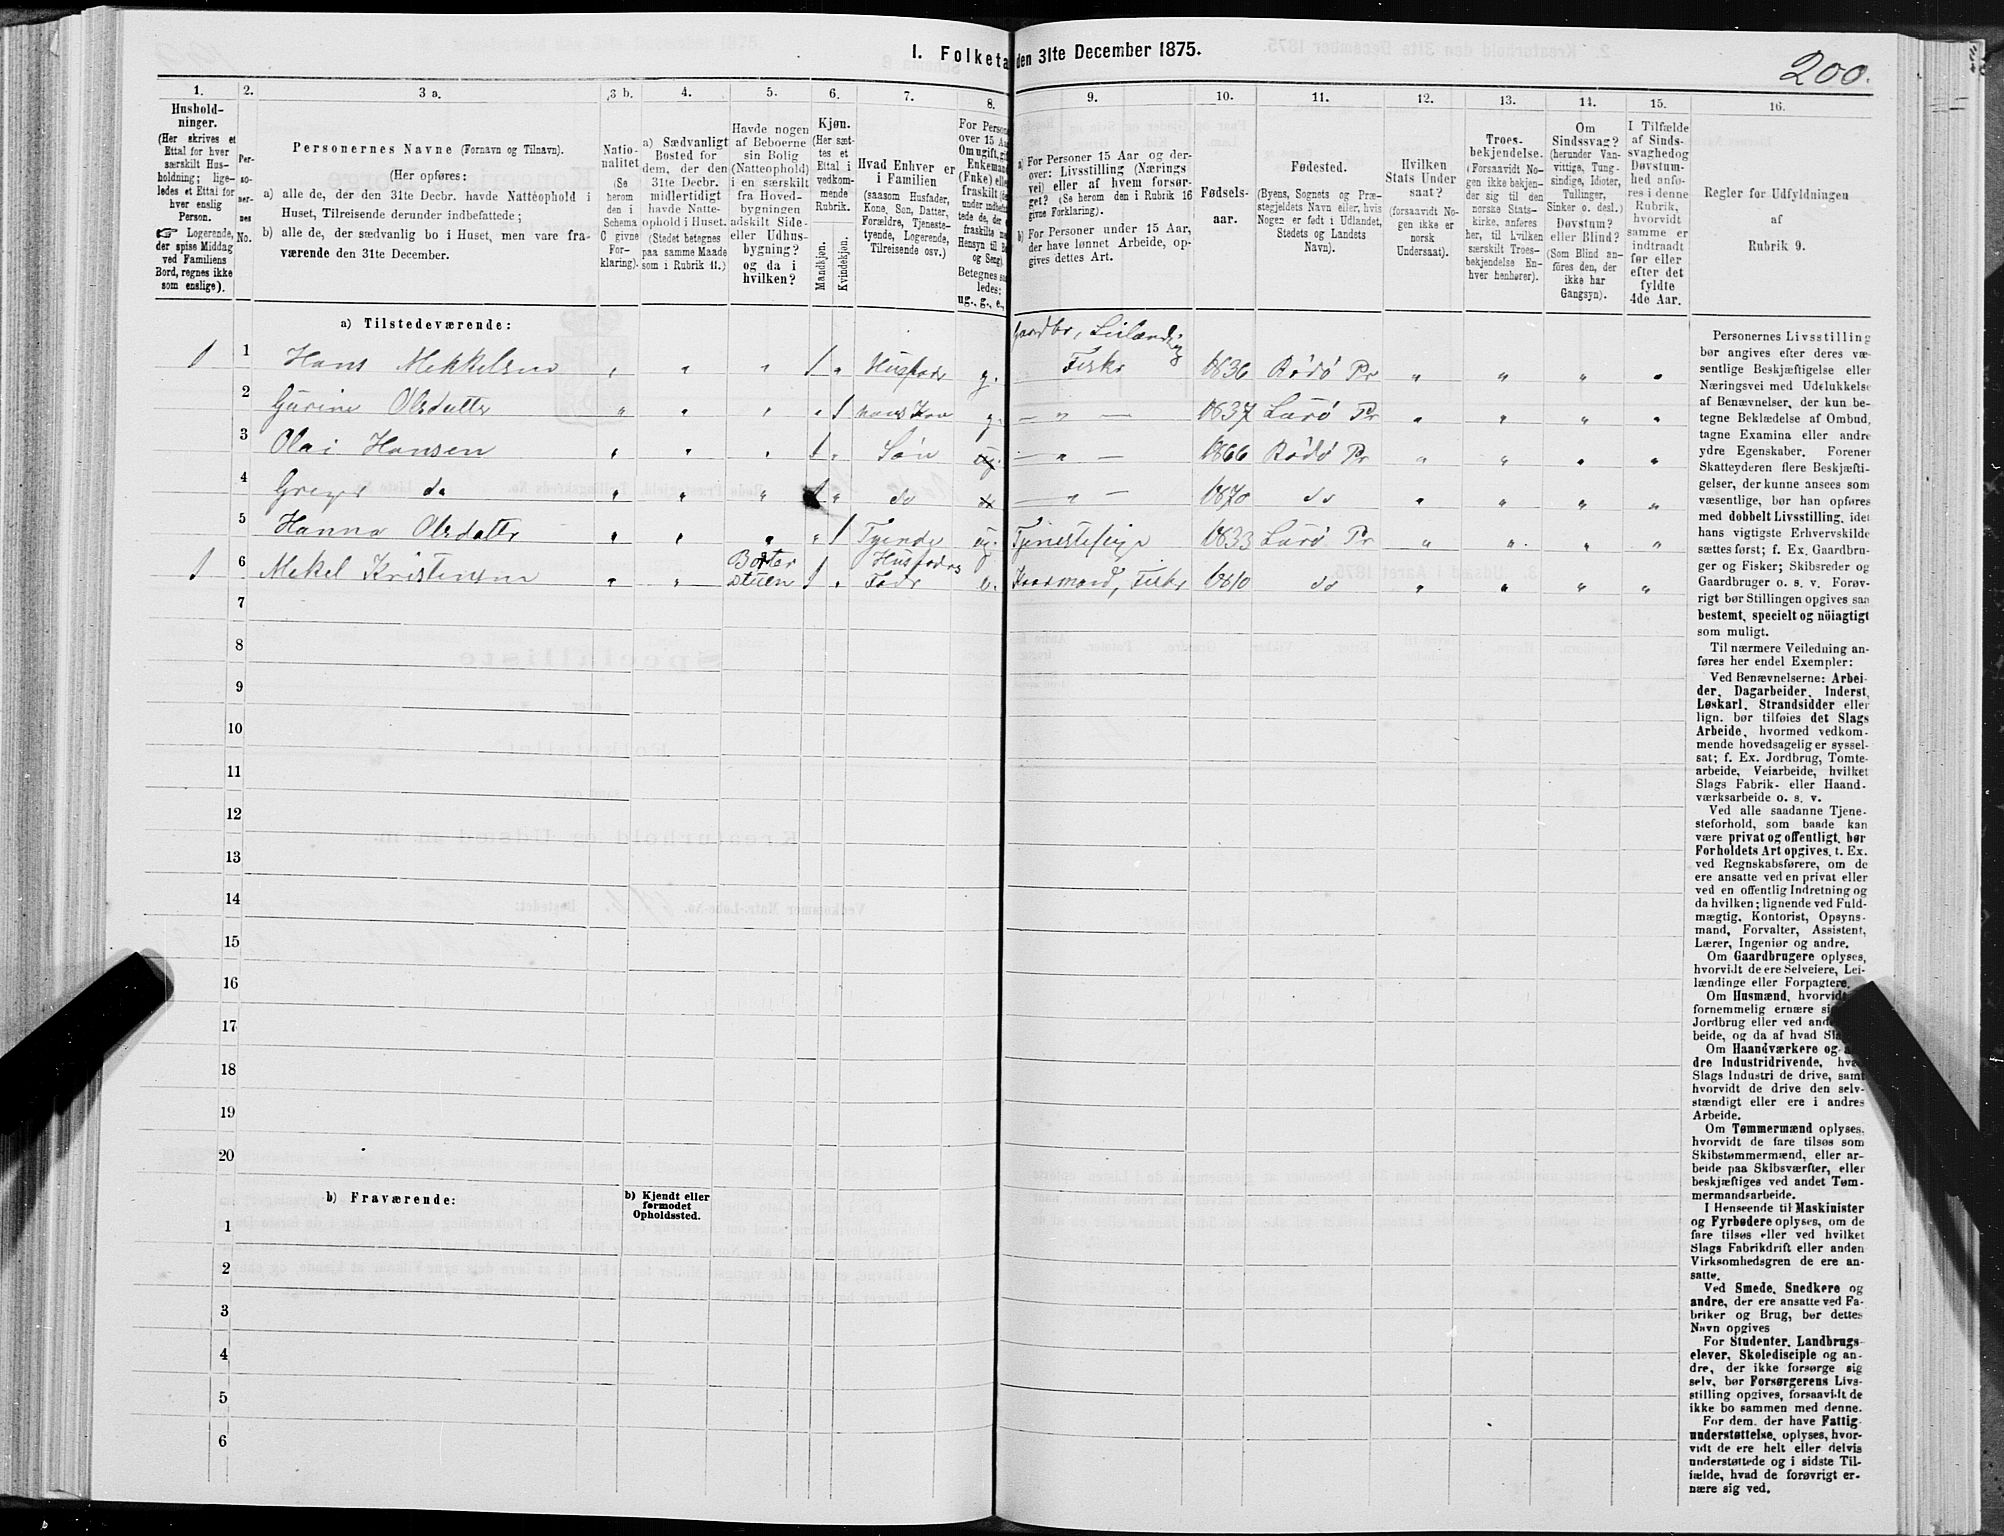 I. Folketa
den 31te December 1875.
200.
1.
2.
3 a.
3 b.
4.
5.
6.
7.
8.
9.
10.
11.
12.
13.
14.
15.
16.
Hushold-
ninger.
(Her skrives et
Ettal for hver
særskilt Hus-
holdning; lige-
ledes et Ettal for
hver enslig
Person.
☞ Logerende,
der spise Middag
ved Familiens
Bord, regnes ikke
som enslige).
Per-
so-
ner-
nes
No.
Personernes Navne (Fornavn og Tilnavn).
(Her opføres:
a) alle de, der den 31te Decbr. havde Natteophold i
Huset, Tilreisende derunder indbefattede;
b) alle de, der sædvanlig bo i Huset, men vare fra-
værende den 31te December.
Natio-
nalitet
(Se
herom
den i
Schema
C givne
For-
klaring).
a) Sædvanligt
Bosted for
dem, der den
31te Decbr.
midlertidigt
havde Natte-
ophold i Huset.
(Stedet betegnes
paa samme Maade
som i Rubrik 11.)
Havde nogen
af Beboerne
sin Bolig
(Natteophold)
i en særskilt
fra Hoved-
bygningen
adskilt Side-
eller Udhus-
bygning?
og da i
hvilken?
Kjøn.
(Her sæt-
tes et
Ettal i
vedkom-
mende
Rubrik.
Mandkjøn.
Kvindekjøn.
Hvad Enhver er
i Familien
(saasom Husfader,
Kone, Søn, Datter,
Forældre, Tjeneste-
tyende, Logerende,
Tilreisende osv.)
For Person
over 15 Aar
Om ugift, gift
Enkemand
(Enke) eller
fraskilt
Hensyn til B
og Seng).
Betegnes saa
ledes:
ug., g., e.,
a) For Personer 15 Aar og der-
over: Livsstilling (Nærings
vei) eller af hvem forsør-
get? (Se herom den i Rubrik 16
givne Forklaring).
b) For Personer under 15 Aar,
der have lønnet Arbeide, op-
gives dettes Art.
Fødsels-
aar.
Fødested.
(Byens, Sognets og Præ-
stegjeldets Navn eller, hvis
Nogen er født i Udlandet,
Stedets og Landets
Navn).
Hvilken
Stats Under
saat?
(forsaavidt No-
gen ikke er
norsk
Undersaat).
Troes-
bekjendelse.
(Forsaavidt No-
gen ikke bekjen-
der sig til den
norske Stats-
kirke, anføres
her, til hvilken
særskilt Troes-
bekjendelse En-
hver henhører).
Om
Sindssvag?
(herunder Van-
vittige, Tung-
sindige, Idioter,
Tullinger,
Sinker o. desl.)
Døvstum?
eller Blind?
(Som Blind an-
føres den, der
ikke har
Gangsyn).
I Tilfælde
af Sinds-
svaghed og
Døvstum-
hed anfø-
res i denne
Rubrik,
hvorvidt
samme er
indtraadt
før eller
efter det
fyldte
4de Aar.
Regler for Udfyldningen
af
Rubrik 9.
a) Tilstedeværende:
Gaardbr, Leilænding
1 1 Hans Mekkelsen " " " 1 " Husfadr g. Fisker 1836 Rødø Pr " " " "
2 Gurine Olsdatter " " " " 1 hans Kon g. — " — 1837 Lurø Pr " " " "
3 Olai Hansen " " " 1 " Søn ug. — " — 1866 Rødø Pr " " " "
4 Greger do " " " 1 " do — " — 1870 do " " " "
5 Hanna Olsdatter " " " " 1 Tyende ug. Tjenestepige 1833 Lurø Pr " " " "
1 6 Mekel Kristensen " " Borterstuen 1 " Husfadrs Fadr e. Kaarmand, Fisker 1810 do " " " "
7
8
9
10
11
12
13
14
15
16
17
18
19
20
b) Fraværende:
b) Kjendt eller
formodet
Opholdssted.
1
2
3
4
5
6
Personernes Livsstilling
bør angives efter deres væ-
sentlige Beskjæftigelse eller
Næringsvei med Udelukkelse
af Benævnelser, der kun be-
tegne Beklædelse af Ombud,
tagne Examina eller andre
ydre Egenskaber. Forener
Skatteyderen flere Beskjæfti-
gelser, der kunne ansees som
væsentlige, bør han opføres
med dobbelt Livsstilling, idet
hans vigtigste Erhvervskilde
sættes først; f. Ex. Gaardbru-
ger og Fisker; Skibsreder og
Gaardbruger o. s. v. Forøv-
rigt bør Stillingen opgives saa
bestemt, specielt og nöiagtigt
som muligt.
Til nærmere Veiledning an-
føres her endel Exempler:
Ved Benævnelserne: Arbei-
der, Dagarbeider, Inderst,
Løskarl, Strandsidder eller
lign. bør tilføies det Slags
Arbeide, hvormed vedkom-
mende hovedsagelig er syssel-
sat; f. Ex. Jordbrug, Tomte-
arbeide, Veiarbeide, hvilket
Slags Fabrik- eller Haand-
værksarbeide o. s. v.
Ved alle saadanne Tjene-
steforhold, som baade kan
være privat og offentligt, bør
Forholdets Art opgives, t. Ex.
ved Regnskabsførere, om de
ere ansatte ved en privat eller
ved en offentlig Indretning og
da hvilken; lignende ved Fuld-
mægtig, Kontorist, Opsyns-
mand, Forvalter, Assistent,
Lærer, Ingeniør og andre.
Om Gaardbrugere oplyses,
hvorvidt de ere Selveiere, Lei-
lændinge eller Forpagtere.
Om Husmænd, hvorvidt
fornemmelig ernære si
Jordbrug eller ved and
beide, og da af hvad Sla
Om Haandværkere og
dre Industridrivende, hva
Slags Industri de drive, samt
hvorvidt de drive den selv-
stændigt eller ere i andres
Arbeide.
Om Tømmermænd oplyses,
hvorvidt de fare tilsøs som
Skibstømmermænd, eller ar-
beide paa Skibsværfter, eller
beskjæftiges ved andet Tøm-
mermandsarbeide.
I Henseende til Maskinister
og Fyrbødere oplyses, om de
fare tilsøs eller ved hvilket
Slags Fabrikdrift eller anden
Virksomhedsgren de ere an-
satte.
Ved Smede, Snedkere og
andre, der ere ansatte ved Fa-
briker og Brug, bør dettes
Navn opgives
For Studenter, Landbrugs-
elever, Skoledisciple og an-
dre, der ikke forsørge sig
selv, bør Forsørgerens Livs-
stilling opgives, forsaavidt de
ikke bo sammen med denne.
For dem, der have Fattig-
understøttelse, oplyses, hvor-
vidt de ere helt eller delvis
understøttede og i sidste Til-
fælde, hvad de forøvrigt er-
nære sig ved.